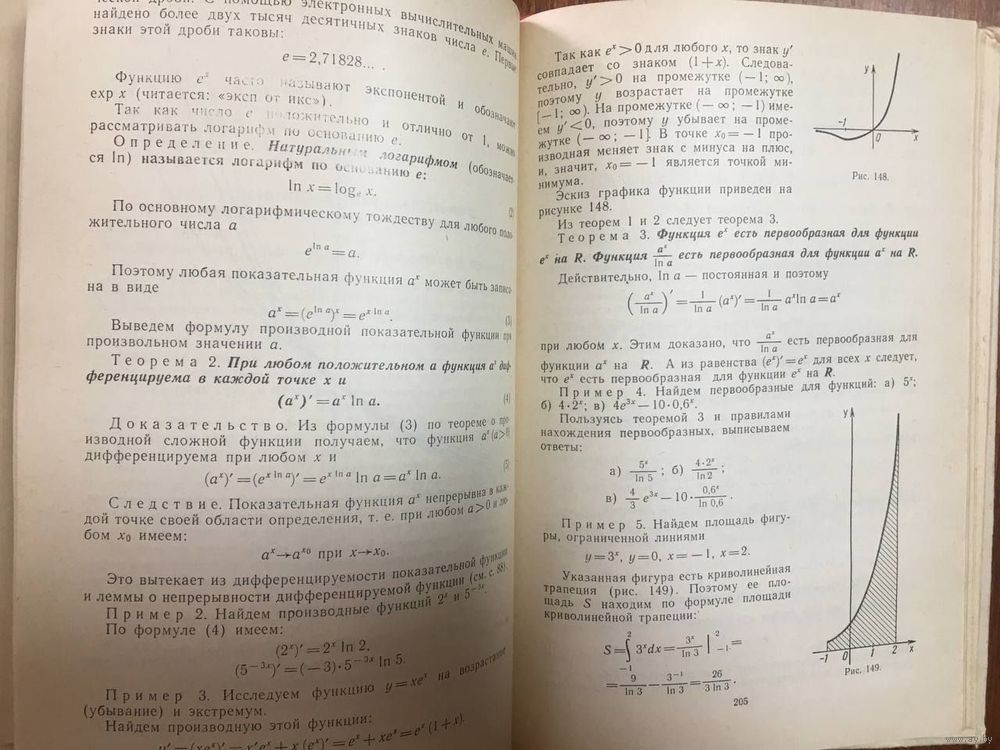 ческой дроби. С помощью электронных вычислительных машин
найдено более двух тысяч десятичных знаков числа e. Первые
знаки этой дроби таковы:
e=2,71828... .
Функцию eˣ часто называют экспонентой и обозначают
exp x (читается: «эксп от икс»).
Так как число e положительно и отлично от 1, можно
рассматривать логарифм по основанию e.
Определение. Натуральным логарифмом (обозначает-
ся ln) называется логарифм по основанию e:
ln x=logₑ x. (2)
По основному логарифмическому тождеству для любого поло-
жительного числа a
e^{ln a}=a.
Поэтому любая показательная функция aˣ может быть записа-
на в виде
aˣ=(e^{ln a})ˣ=e^{x ln a}. (3)
Выведем формулу производной показательной функции при
произвольном значении a.
Теорема 2. При любом положительном a функция aˣ диф-
ференцируема в каждой точке x и
(aˣ)′=aˣ ln a. (4)
Доказательство. Из формулы (3) по теореме о про-
изводной сложной функции получаем, что функция aˣ (a>0)
дифференцируема при любом x и
(aˣ)′=(e^{x ln a})′=e^{x ln a} ln a=aˣ ln a. (5)
Следствие. Показательная функция aˣ непрерывна в каж-
дой точке своей области определения, т. е. при любом a>0 и лю-
бом x₀ имеем:
aˣ→a^{x₀} при x→x₀.
Это вытекает из дифференцируемости показательной функции
и леммы о непрерывности дифференцируемой функции (см. с. 88).
Пример 2. Найдем производные функций 2ˣ и 5^{−3x}.
По формуле (4) имеем:
(2ˣ)′=2ˣ ln 2,
(5^{−3x})′=(−3)·5^{−3x} ln 5.
Пример 3. Исследуем функцию y=xeˣ на возрастание
(убывание) и экстремум.
Найдем производную этой функции:
y′=(xeˣ)′=x′eˣ+x(eˣ)′=eˣ+xeˣ=eˣ(1+x).
Так как eˣ>0 для любого x, то знак y′
совпадает со знаком (1+x). Следова-
тельно, y′>0 на промежутке (−1; ∞),
поэтому y возрастает на промежутке
[−1; ∞). На промежутке (−∞; −1) име-
ем y′<0, поэтому y убывает на проме-
жутке (−∞; −1]. В точке x₀=−1 про-
изводная меняет знак с минуса на плюс,
и, значит, x₀=−1 является точкой ми-
нимума.
Эскиз графика функции приведен на
рисунке 148.
y
−1
0
x
Рис. 148.
Из теорем 1 и 2 следует теорема 3.
Теорема 3. Функция eˣ есть первообразная для функции
eˣ на R. Функция aˣ/ln a есть первообразная для функции aˣ на R.
Действительно, ln a — постоянная и поэтому
(aˣ/ln a)′=1/ln a (aˣ)′=1/ln a aˣ ln a=aˣ
при любом x. Этим доказано, что aˣ/ln a есть первообразная для
функции aˣ на R. А из равенства (eˣ)′=eˣ для всех x следует,
что eˣ есть первообразная для функции eˣ на R.
Пример 4. Найдем первообразные для функций: а) 5ˣ;
б) 4·2ˣ; в) 4e^{3x}−10·0,6ˣ.
Пользуясь теоремой 3 и правилами
нахождения первообразных, выписываем
ответы:
а) 5ˣ/ln 5; б) 4·2ˣ/ln 2;
в) 4/3 e^{3x}−10·0,6ˣ/ln 0,6.
Пример 5. Найдем площадь фигу-
ры, ограниченной линиями
y=3ˣ, y=0, x=−1, x=2.
Указанная фигура есть криволинейная
трапеция (рис. 149). Поэтому ее пло-
щадь S находим по формуле площади
криволинейной трапеции:
S=∫₋₁² 3ˣdx=3ˣ/ln 3 |₋₁²=
=9/ln 3−3⁻¹/ln 3=26/3 ln 3.
y
−1
0
1
2
x
Рис. 149.
205
www.ay.by